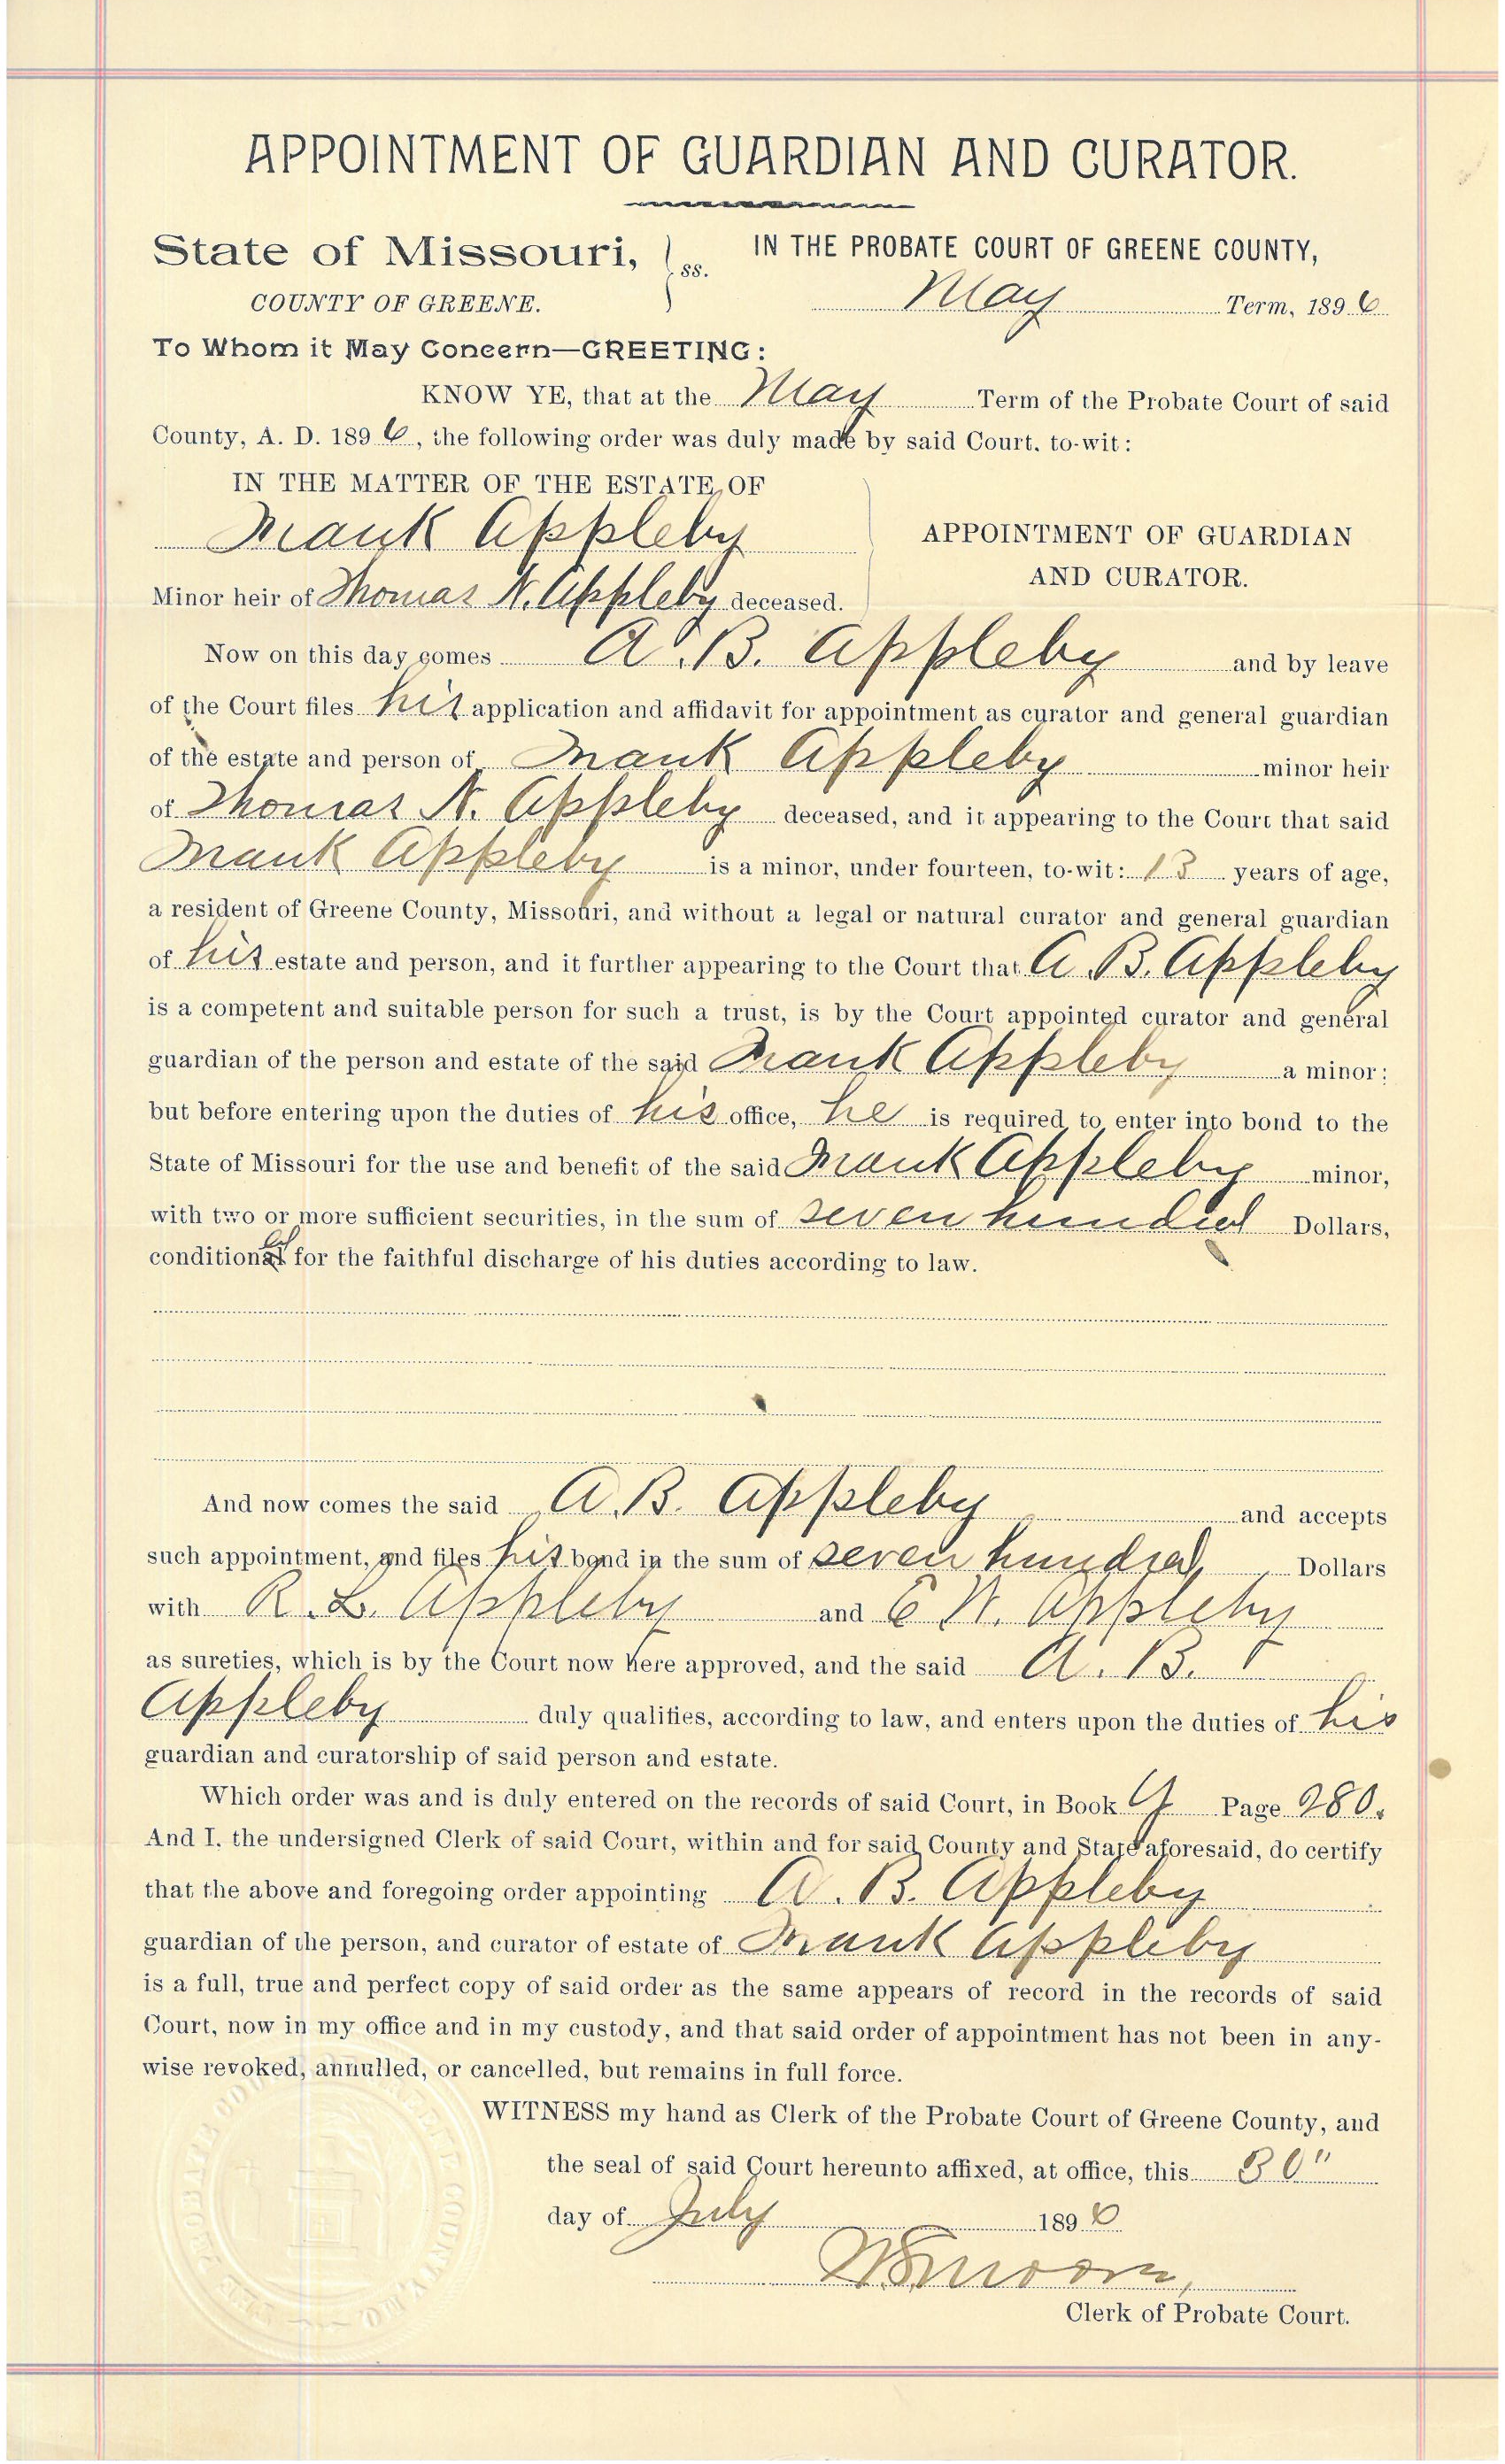 APPOINTMENT OF GUARDIAN AND CURATOR.
State of Missouri, ss. IN THE PROBATE COURT OF GREENE COUNTY,
COUNTY OF GREENE. May Term, 1896
To Whom it May Concern—GREETING:
KNOW YE, that at the May Term of the Probate Court of said
County, A. D. 1896, the following order was duly made by said Court, to-wit:
IN THE MATTER OF THE ESTATE OF
Frank Appleby APPOINTMENT OF GUARDIAN
AND CURATOR.
Minor heir of Thomas N. Appleby deceased.
Now on this day comes A. B. Appleby and by leave
of the Court files his application and affidavit for appointment as curator and general guardian
of the estate and person of Frank Appleby minor heir
of Thomas N. Appleby deceased, and it appearing to the Court that said
Frank Appleby is a minor, under fourteen, to-wit: 13 years of age,
a resident of Greene County, Missouri, and without a legal or natural curator and general guardian
of his estate and person, and it further appearing to the Court that A. B. Appleby
is a competent and suitable person for such a trust, is by the Court appointed curator and general
guardian of the person and estate of the said Frank Appleby a minor:
but before entering upon the duties of his office, he is required to enter into bond to the
State of Missouri for the use and benefit of the said Frank Appleby minor,
with two or more sufficient securities, in the sum of seven hundred Dollars,
conditioned for the faithful discharge of his duties according to law.
And now comes the said A. B. Appleby and accepts
such appointment, and files his bond in the sum of seven hundred Dollars
with R. L. Appleby and E. W. Appleby
as sureties, which is by the Court now here approved, and the said A. B.
Appleby duly qualifies, according to law, and enters upon the duties of his
guardian and curatorship of said person and estate.
Which order was and is duly entered on the records of said Court, in Book Page 280.
And I, the undersigned Clerk of said Court, within and for said County and State aforesaid, do certify
that the above and foregoing order appointing A. B. Appleby
guardian of the person, and curator of estate of Frank Appleby
is a full, true and perfect copy of said order as the same appears of record in the records of said
Court, now in my office and in my custody, and that said order of appointment has not been in any-
wise revoked, annulled, or cancelled, but remains in full force.
WITNESS my hand as Clerk of the Probate Court of Greene County, and
the seal of said Court hereunto affixed, at office, this 30"
day of July 1896
Clerk of Probate Court.